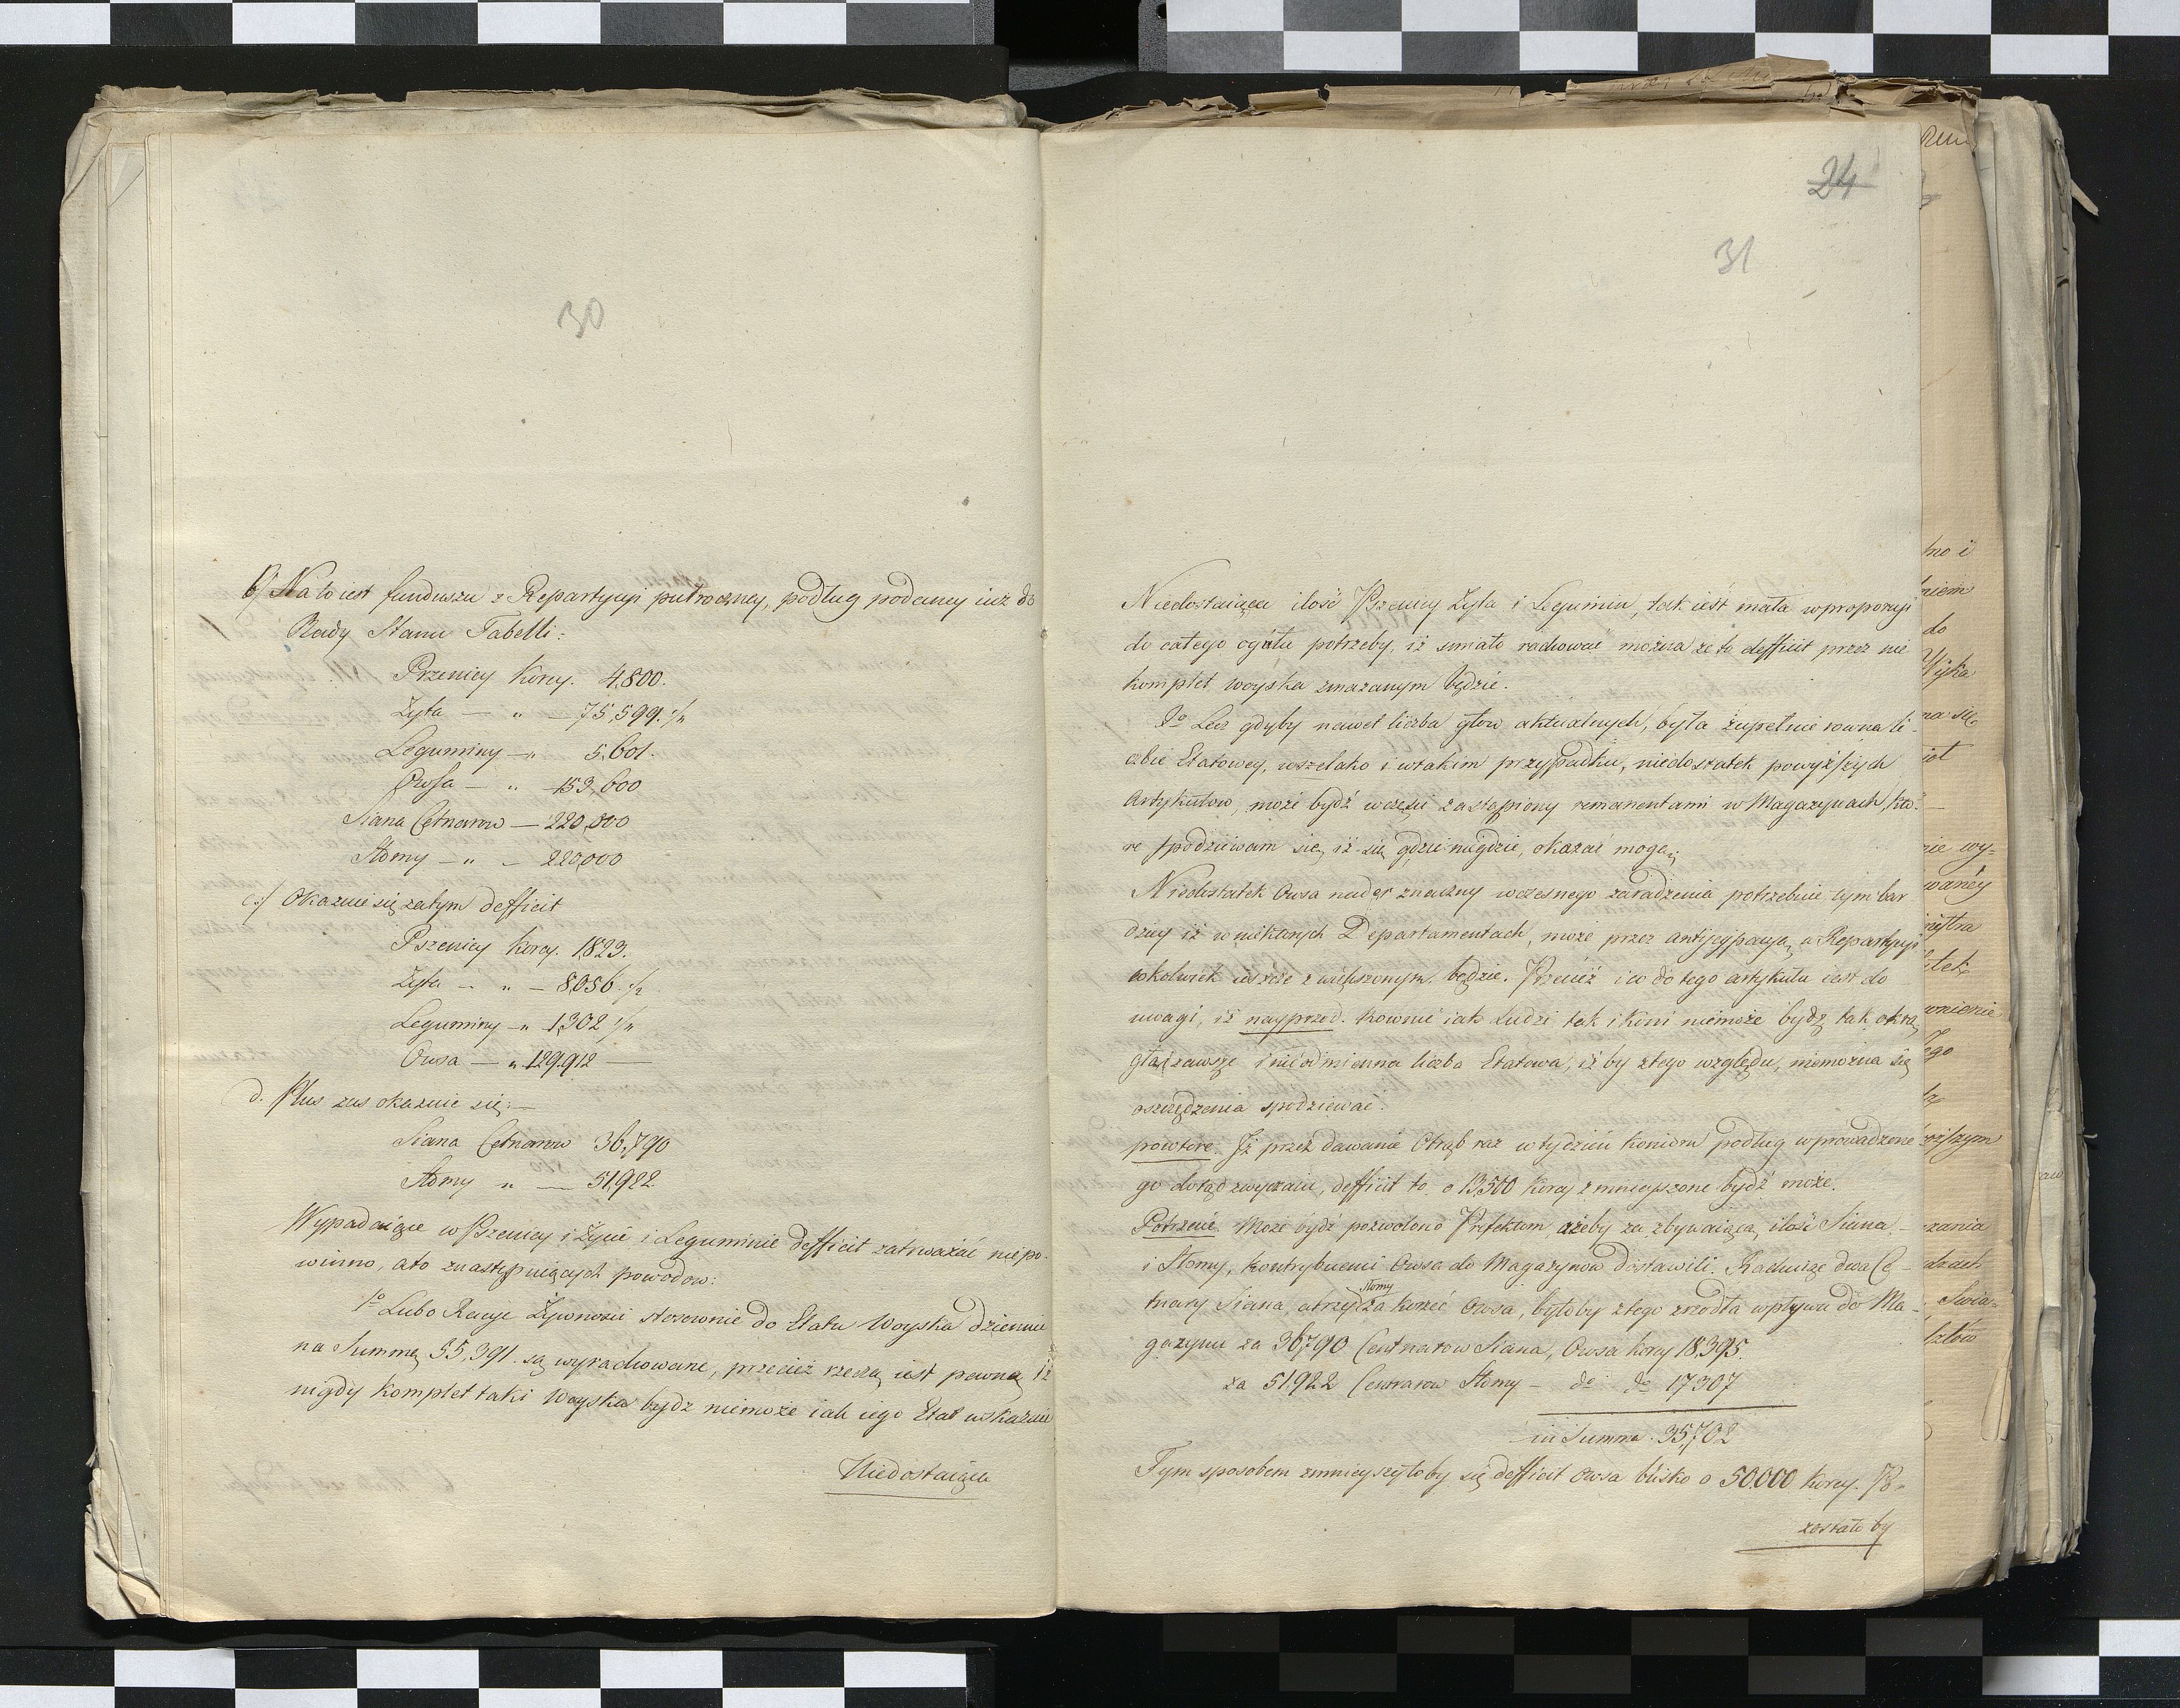 30
b/ Na to iest funduszu z Repartycyi putroczney, podług podaney iuż do
Rady Stanu Tabelli:
Przenicy Korcy. 4,800.
Żyta — " — 75,599.
Leguminy — " 5,601.
Owsa — " — 153,600
Siana Cetnarow — 220,000
Słomy — " — 220,000
c:/ Okazuie się zatym defficit
Pszenicy Korcy. 1,823.
Żyta — " — 8,056. 1/2
Leguminy — " 1,302
Owsa — " 129,912 —
d. Plus zas okazuie się: —
Siana Cetnarow 36,790
Słomy " — 51,922
Wypadaiące w Pszenicy i Życie i Leguminie defficit zatrważać niepo-
winno, a to z następuiących powodow:
1o Lubo Racye Żywności stosownie do Etatu Woyska dziennie
na Summę 55,391. są wyrachowane, przecież rzeczą iest pewną, iż
nigdy komplet taki Woyska bydz niemoże iak iego Etat wskazuie
Niedostaiąca
24
31
Niedostaiąca ilość Pszenicy Żyta i Legumin, tak iest mała w proporcyi
do całego ogułu potrzeby, iż smiało rachować można że to defficit przez nie
komplet woyska zmazanym będzie.
2o Lecz gdyby nawet liczba głow aktualnych, była zupełnie rowna li-
czbie Etatowey, wszelako i w takim przypadku, niedostatek powyższych
Artykułow, może bydź w części zastąpiony remanentami w Magazynach, kto-
re spodziewam się, iż się gdzie niegdzie, okazać mogą;
Niedostatek Owsa nader znaczny wczesnego zaradzenia potrzebuie tym bar
dziey iż w niektorych Departamentach, może przez antycypacyą, a Repartycyi
cokolwiek ieszcze zwiększonym będzie. Przecież i co do tego artykułu iest do
uwagi, iż nayprzod. Rownie iak Ludzi tak i Koni niemoże bydz tak okrą
gła zawsze i nieodmienna liczba Etatowa, iż by z tego względu, niemożna się
oszczędzenia spodziewać.
powtore. Iż przez dawanie Otrąb raz w tydzień koniom podług wprowadzone
go dotąd zwyczaiu, defficit to o 13,500 Korcy zmnieyszone bydź może.
Potrzecie. Może bydź pozwolono Prefektom, ażeby za zbywaiącą ilość Siana
i Słomy, kontrybuenci Owsa do Magazynow dostawili. Rachuiąc dwa Ce-
tnary Siana, a trzy Słomy za korzec Owsa, byłoby z tego zrodła wpływu do Ma-
gazynu za 36,790 Centnarow Siana, Owsa Korcy 18,395.
za 51,922 Centnarow Słomy — do do 17,307
in Summa. 35,702
Tym sposobem zmnieyszyłoby się defficit Owsa blisko o 50,000 Korcy. Po-
zostało by